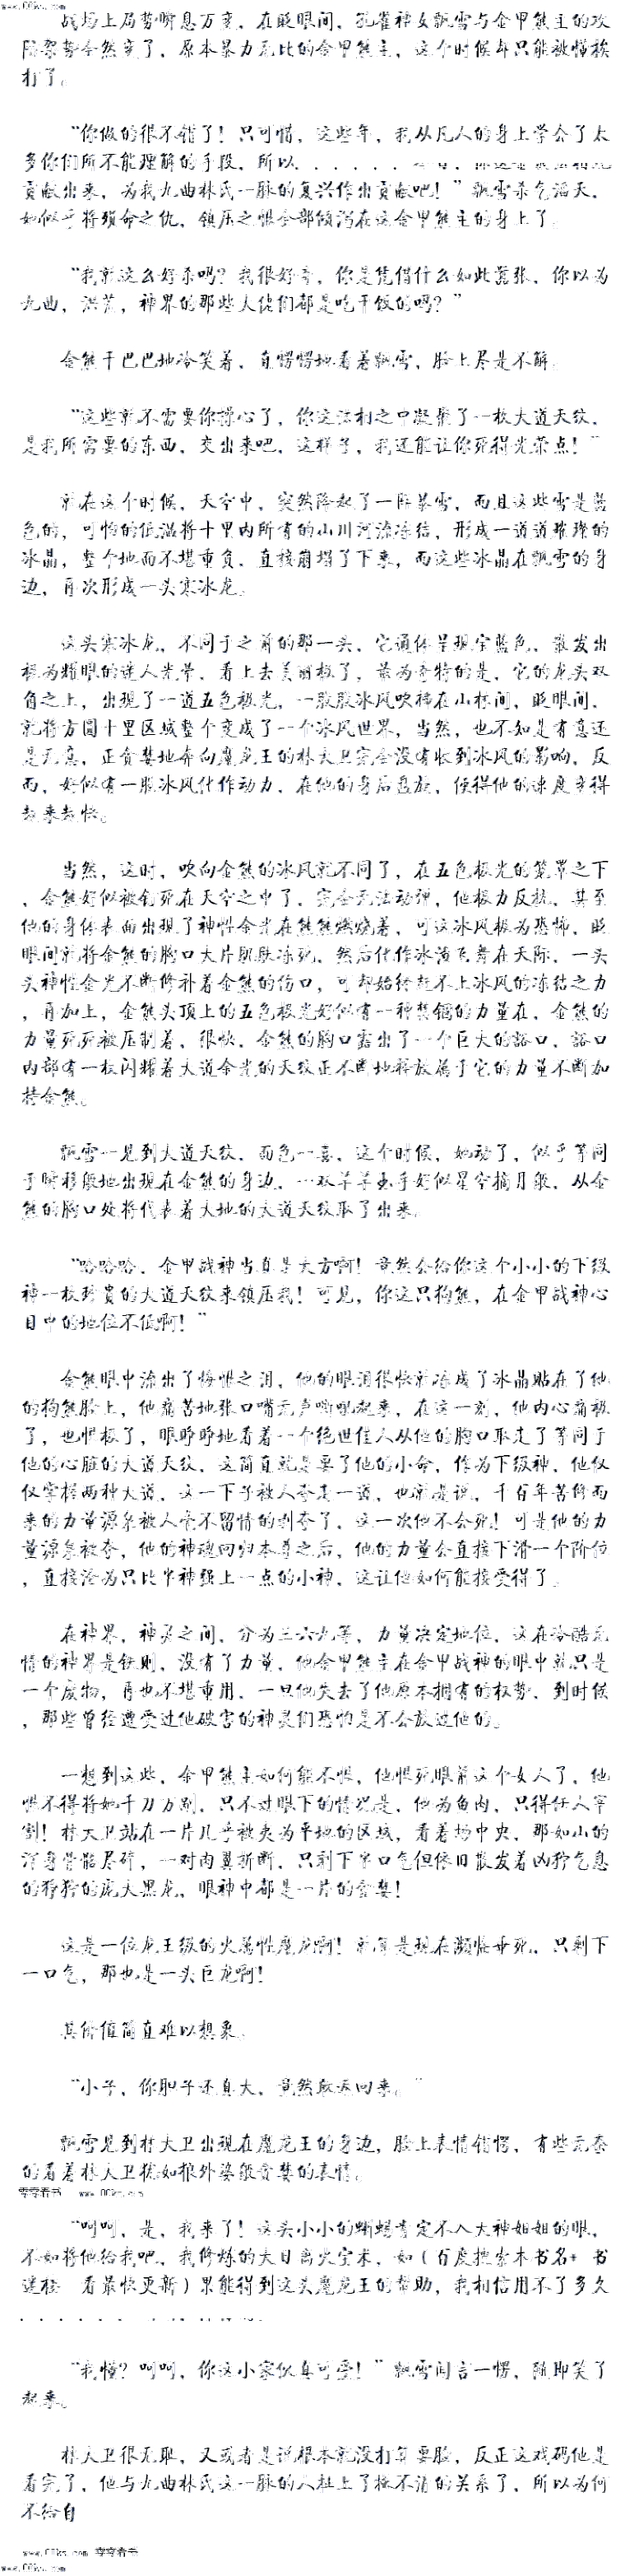 www.00ks.com
战场上局势瞬息万变，在眨眼间，孔雀神女飘雪与金甲熊主的攻
防架势全然变了，原本暴力无比的金甲熊主，这个时候却只能被懂挨
打了。
“你做的很不错了！只可惜，这些年，我从凡人的身上学会了太
多你们所不能理解的手段，所以．．．．．．
贡献出来，为我九曲林氏一脉的复兴作出贡献吧！”飘雪杀气滔天，
她似乎将殒命之仇，镇压之恨全部倾泻在这金甲熊主的身上了。
“我就这么好杀吗？我很好奇，你是凭借什么如此嚣张，你以为
九曲，洪荒，神界的那些大佬们都是吃干饭的吗？”
金熊干巴巴地冷笑着，直愣愣地看着飘雪，脸上尽是不解。
“这些就不需要你操心了，你这法相之中凝聚了一枚大道天纹，
是我所需要的东西，交出来吧，这样子，我还能让你死得光荣点！”
就在这个时候，天空中，突然降起了一阵暴雪，而且这些雪是蓝
色的，可怕的低温将十里内所有的山川河流冻结，形成一道道璀璨的
冰晶，整个地面不堪重负，直接崩塌了下来，而这些冰晶在飘雪的身
边，再次形成一头寒冰龙。
这头寒冰龙，不同于之前的那一头，它通体呈现宝蓝色，散发出
极为耀眼的迷人光晕，看上去美丽极了，最为奇特的是，它的龙头双
角之上，出现了一道五色极光，一股股冰风吹拂在山林间，眨眼间，
就将方圆十里区域整个变成了一个冰风世界，当然，也不知是有意还
是无意，正贪婪地奔向魔龙王的林大卫完全没有收到冰风的影响，反
而，好似有一股冰风化作动力，在他的身后盘旋，使得他的速度变得
越来越快。
当然，这时，吹向金熊的冰风就不同了，在五色极光的笼罩之下
，金熊好似被钉死在天空之中了，完全无法动弹，他极力反抗，甚至
他的身体表面出现了神性金光在熊熊燃烧着，可这冰风极为恐怖，眨
眼间就将金熊的胸口大片肌肤冻死，然后化作冰渣飞舞在天际，一头
头神性金光不断修补着金熊的伤口，可却始终赶不上冰风的冻结之力
，再加上，金熊头顶上的五色极光好似有一种禁锢的力量在，金熊的
力量死死被压制着，很快，金熊的胸口露出了一个巨大的豁口，豁口
内部有一枚闪耀着大道金光的天纹正不断地释放属于它的力量不断加
持金熊。
飘雪一见到大道天纹，面色一喜，这个时候，她动了，似乎等同
于瞬移般地出现在金熊的身边，一双芊芊玉手好似星空摘月般，从金
熊的胸口处将代表着大地的大道天纹取了出来。
“哈哈哈，金甲战神当真是大方啊！竟然会给你这个小小的下级
神一枚珍贵的大道天纹来镇压我！可见，你这只狗熊，在金甲战神心
目中的地位不低啊！”
金熊眼中流出了悔恨之泪，他的眼泪很快就冻成了冰晶贴在了他
的狗熊脸上，他痛苦地张口嘴无声嘶吼起来，在这一刻，他内心痛极
了，也恨极了，眼睁睁地看着一个绝世佳人从他的胸口取走了等同于
他的心脏的大道天纹，这简直就是要了他的小命，作为下级神，他仅
仅掌握两种大道，这一下子被人夺走一道，也就是说，千百年苦修而
来的力量源泉被人毫不留情的剥夺了，这一次他不会死！可是他的力
量源泉被夺，他的神魂回归本尊之后，他的力量会直接下滑一个阶位
，直接沦为只比半神强上一点的小神，这让他如何能接受得了。
在神界，神灵之间，分为三六九等，力量决定地位，这在冷酷无
情的神界是铁则，没有了力量，他金甲熊主在金甲战神的眼中就只是
一个废物，再也不堪重用，一旦他失去了他原本拥有的权势，到时候
，那些曾经遭受过他破害的神灵们恐怕是不会放过他的。
一想到这些，金甲熊主如何能不恨，他恨死眼前这个女人了，他
恨不得将她千刀万剐，只不过眼下的情况是，他为鱼肉，只得任人宰
割！林大卫站在一片几乎被夷为平地的区域，看着场中央，那如山的
浑身骨骼尽碎，一对肉翼折断，只剩下半口气但依旧散发着凶狞气息
的狰狞的庞大黑龙，眼神中都是一片的贪婪！
这是一位龙王级的火属性魔龙啊！就算是现在濒临垂死，只剩下
一口气，那也是一头巨龙啊！
其价值简直难以想象。
“小子，你胆子还真大，竟然敢返回来。”
飘雪见到林大卫出现在魔龙王的身边，脸上表情错愕，有些无奈
的看着林大卫犹如狼外婆般贪婪的表情。
零零看书 www.00ks.com
“呵呵，是，我来了！这头小小的蜥蜴肯定不入大神姐姐的眼，
不如将他给我吧，我修炼的大日离火宝术，如（百度搜索本书名+ 书
迷楼 看最快更新）果能得到这头魔龙王的帮助，我相信用不了多久
．．．．．．
“我懂？呵呵，你这小家伙真可爱！”飘雪闻言一愣，随即笑了
起来。
林大卫很无耻，又或者是说根本就没打算要脸，反正这戏码他是
看完了，他与九曲林氏这一脉的人扯上了撇不清的关系了，所以为何
不给自
www.00ks.com 零零看书
www.00ks.com